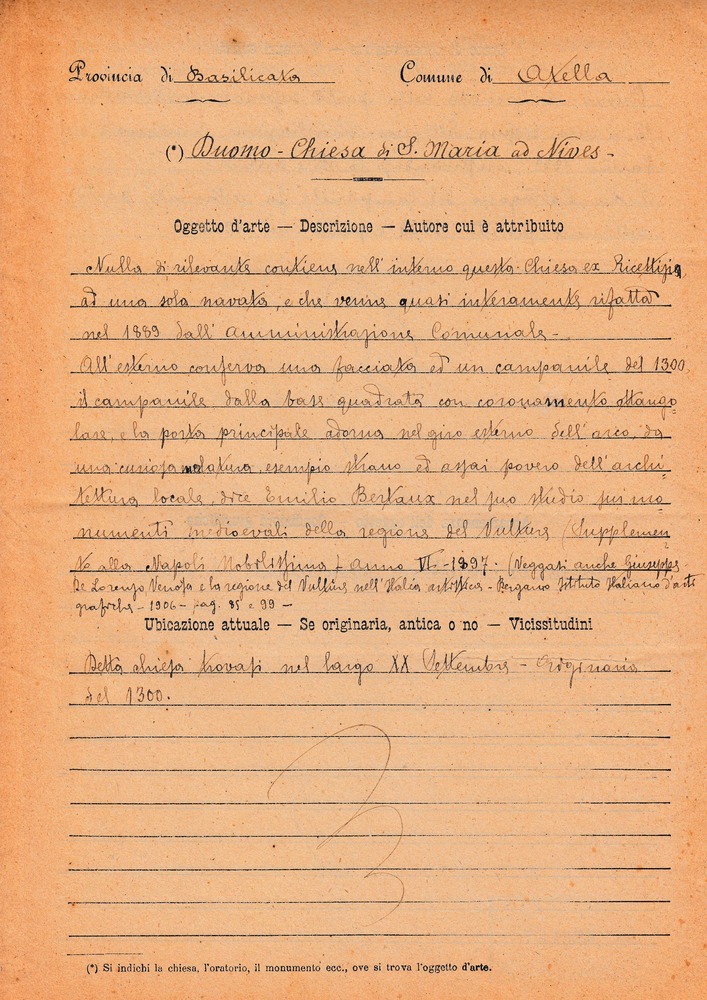 Provincia di Basilicata Comune di Atella
(*) Duomo - Chiesa di S. Maria ad Nives -
Oggetto d'arte — Descrizione — Autore cui è attribuito
Nulla di rilevante contiene nell'interno questa Chiesa ex Ricettizia,
ad una sola navata, e che venne quasi interamente rifatta
nel 1889 dall'Amministrazione Comunale -
All'esterno conserva una facciata ed un campanile del 1300,
il campanile dalla base quadrata con coronamento ottango
lare, e la porta principale adorna nel giro esterno dell'arco, da
una curiosa, esempio strano ed assai povero dell'archi
tettura locale, dice Emilio Bertaux nel suo studio sui mo
numenti medioevali della regione del Vulture (Supplemen
to alla Napoli Nobilissima) anno VI - 1897. (Veggasi anche Giuseppe
De Lorenzo Venosa e la regione del Vulture nell'Italia artistica - Bergamo Istituto Italiano d'arti
grafiche - 1906 - pag. 85 e 99 -
Ubicazione attuale — Se originaria, antica o no — Vicissitudini
Detta chiesa trovasi nel largo XX Settembre - Originaria
del 1300.
(*) Si indichi la chiesa, l'oratorio, il monumento ecc., ove si trova l'oggetto d'arte.